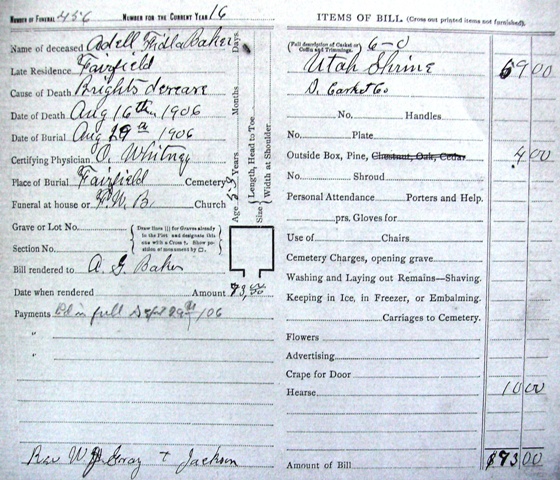 NUMBER OF FUNERAL 456 NUMBER FOR THE CURRENT YEAR 16
Name of deceased Adell Baker
Late Residence Fairfield
Cause of Death Brights
Date of Death Aug 16th 1906
Date of Burial Aug 1906
Certifying Physician O. Whitney
Place of Burial Fairfield Cemetery
Funeral at house or Church
Age 53 Years. Months. Days
Size { Length, Head to Toe. Width at Shoulder
Grave or Lot No.
Section No.
Bill rendered to A. G. Baker
Date when rendered Amount 73,00
Payments Pd in full Sept 29th /06
"
"
Rev W Gray + Jackson
ITEMS OF BILL (Cross out printed items not furnished).
(Full description of Casket or Coffin and Trimmings.) 6-0
Utah Shrine 59 00
D. Casket Co
No. Handles
No. Plate
Outside Box, Pine, Chestnut, Oak, Cedar 4 00
No. Shroud
Personal Attendance Porters and Help.
prs. Gloves for
Use of Chairs
Cemetery Charges, opening grave
Washing and Laying out Remains—Shaving.
Keeping in Ice, in Freezer, or Embalming.
Carriages to Cemetery.
Flowers
Advertising
Crape for Door
Hearse 10 00
Amount of Bill $73 00